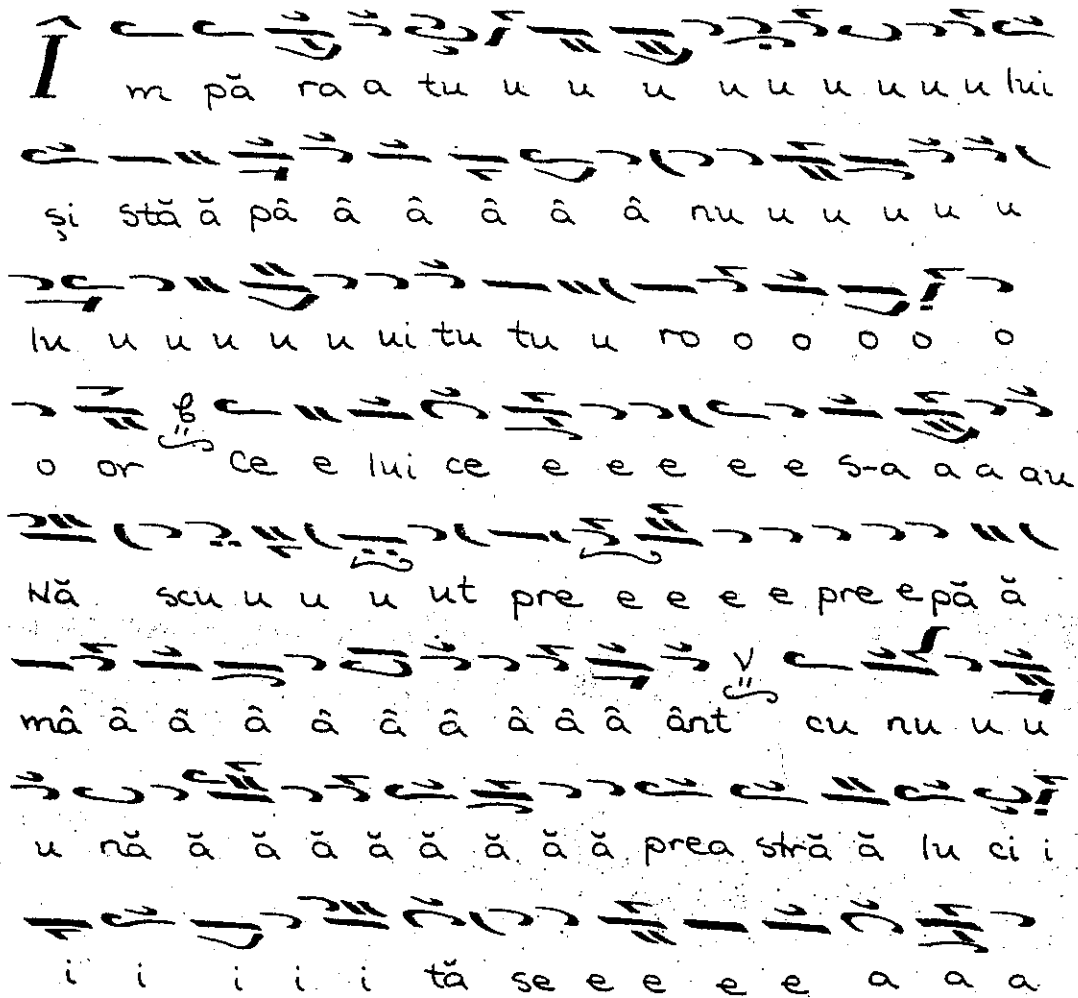 Î m pă ra a tu u u u u u u u u lui
și stă ă pâ â â â â â nu u u u u u
lu u u u u u ui tu tu u ro o o o o o
o or ce e lui ce e e e e e s-a a a au
Nă scu u u u ut pre e e e e pre e pă ă
mâ â â â â â â â â â ânt cu nu u u
u nă ă ă ă ă ă ă ă ă prea stră ă lu ci i
i i i i i tă se e e e e a a a